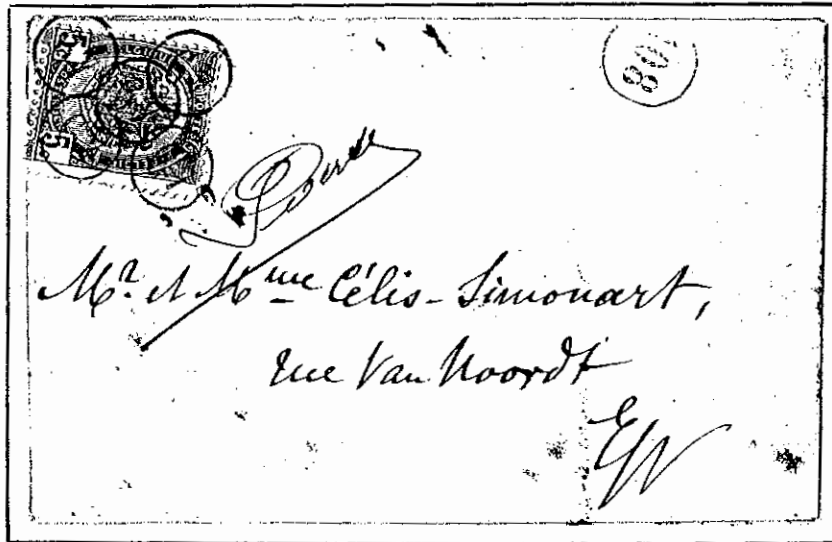 5 5
5
80
Mr. et Mme Célis-Simonart,
rue Van Noordt
E/V